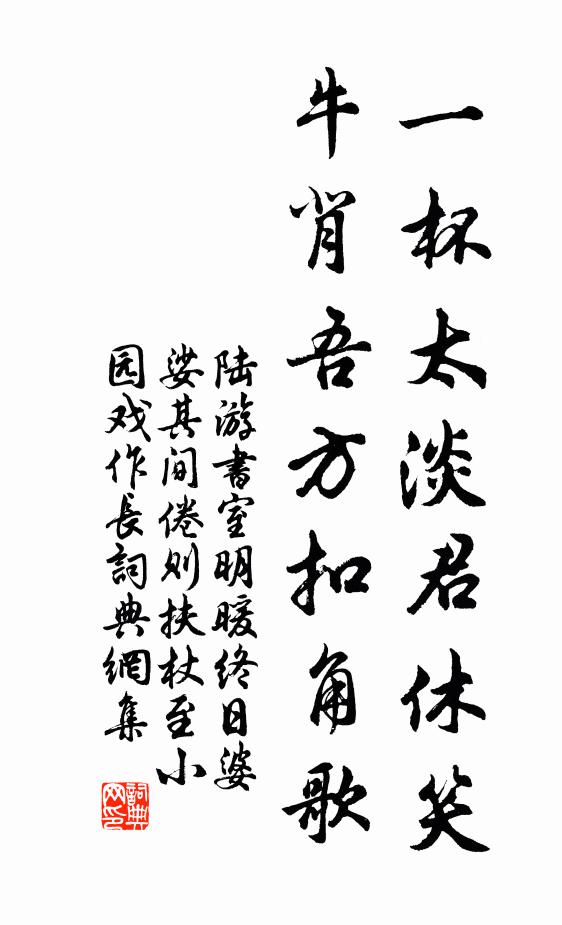 一杯太淡君休笑
牛背吾方扣角歌
陆游書室明暖终日婆
娑其间倦则扶杖至小
园戏作長詞典網集
詞典
网印